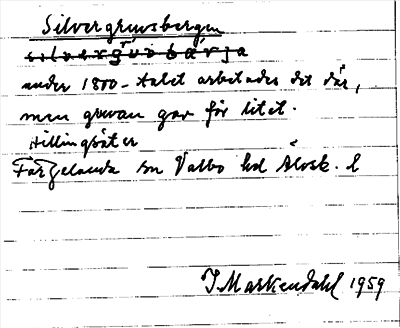 Silvergruvsbergen
silvergruvbärja
under 1800-talet arbetades det där,
men gruvan gav för litet.
Hillingsäter
Färgelanda sn Valbo hd Älvsb. l
J Markendahl 1959